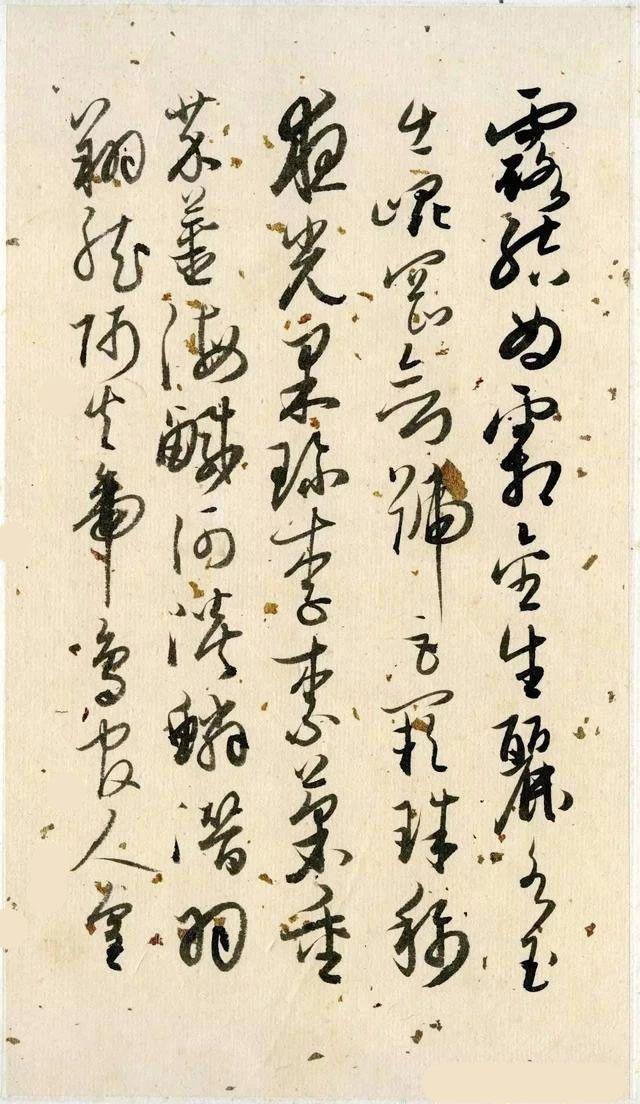 露結為霜金生麗水玉
出崐岡劒號巨闕珠稱
夜光菓珍李柰菜重
芥薑海醎河淡鱗潛羽
翔龍師火帝鳥官人皇